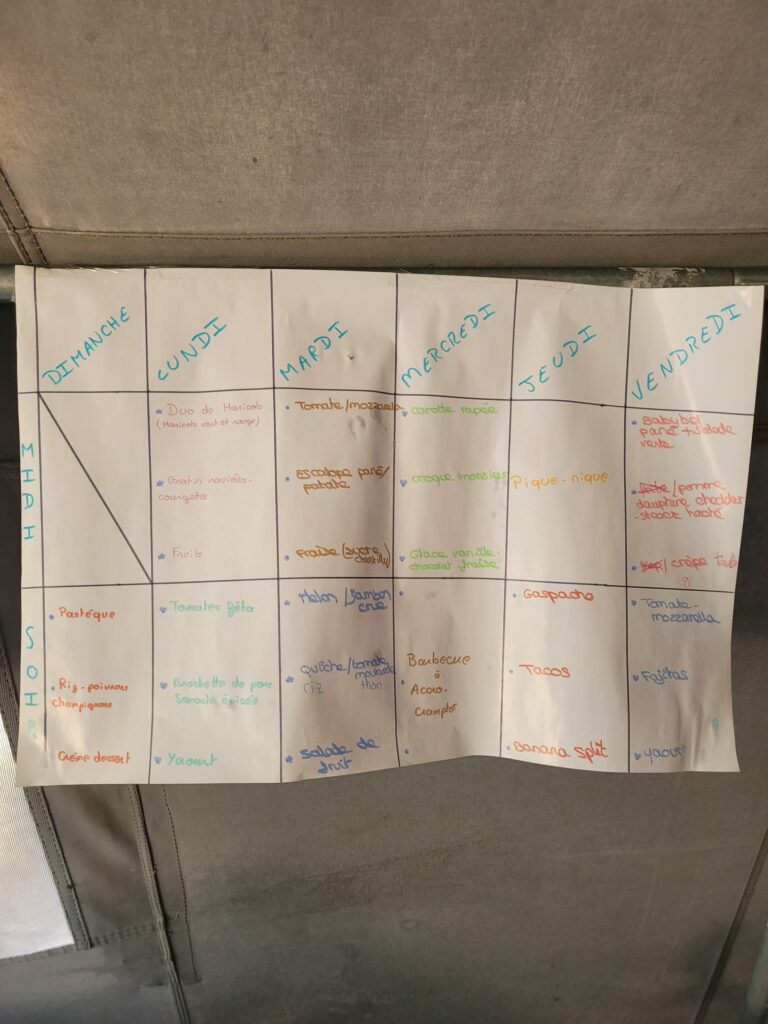 DIMANCHE
LUNDI
MARDI
MERCREDI
JEUDI
VENDREDI
MIDI
Duo de Haricots
(Haricots vert et rouge)
Gratin ravioles-
courgettes
Fruits
Tomate/mozzarella
Escalope pané/
patate
Fraise (sucre,
chantilly)
carotte rapée
croque monsieur
Glace vanille-
chocolat, fraise
Pique-nique
Babybel
pané + salade
verte
/pomme
dauphine cheddar
-steack haché
/ crêpe
SOIR
Pastèque
Riz-poivrons
champignons
Crème dessert
Tomates Féta
Brochette de porc
Semoule épicée
Yaourt
Melon /Jambon
crue
Quiche/tomate
moutarde
riz thon
Salade de
fruit
Barbecue
à
Accro-
champté
Gaspacho
Tacos
Banana split
Tomate-
mozzarella
Fajitas
Yaourt